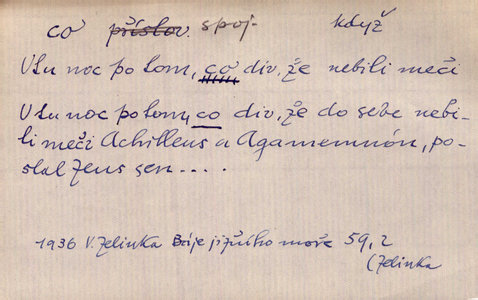 co příslov. spoj. když
V tu noc po tom, co div, že nebili meči
V tu noc po tom, co div, že do sebe nebi-
li meči Achilleus a Agamemnón, po-
slal Zeus sen....
1936 V. Zelinka Báje jižního moře 59, 2
(Zelinka